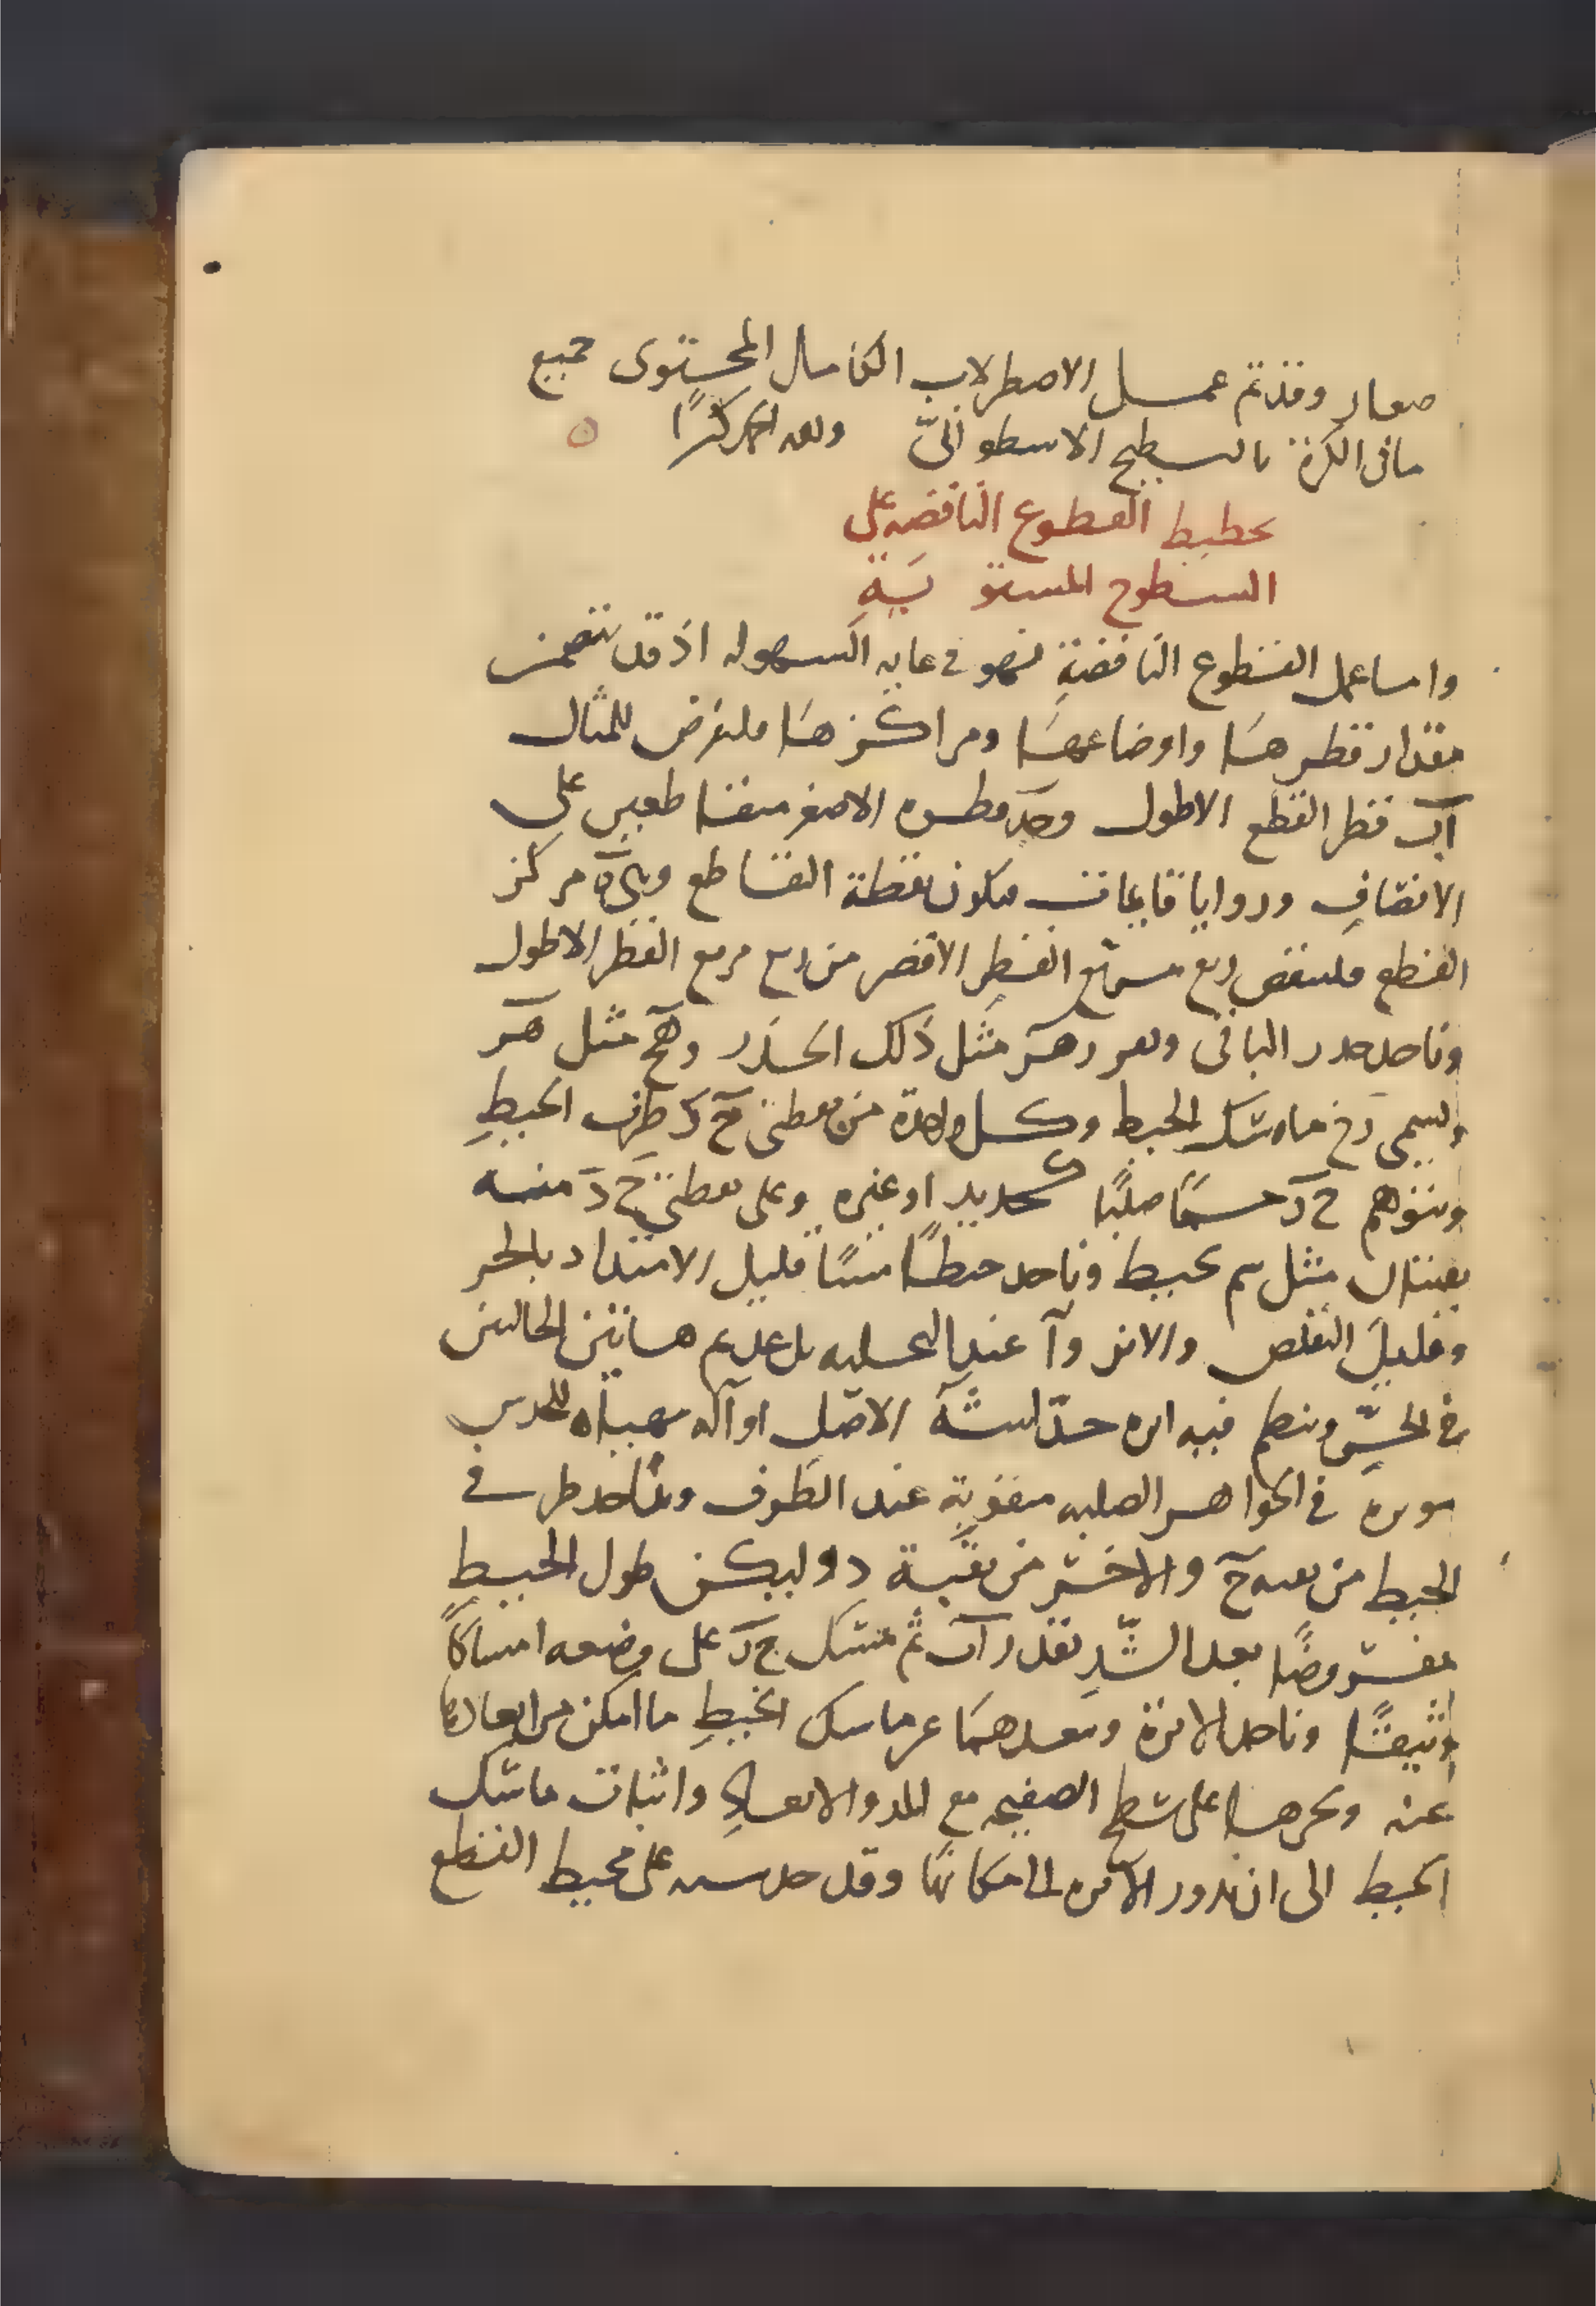 صغار وقد تم عمل الاصطرلاب الكامل المحتوى جميع
ما فى الكرة بالتسطيح الاسطوانىّ ولله الحمد كثيرًا
تخطيط القطوع الناقصه على
السطوح المستوية
واما عمل القطوع الناقصةِ فهو فى غايه السهوله اذ قد تتضمن
مقدار قطرها واوضاعها ومراكزها فلنفرض للمثال
اب قطر القطع الاطول وحد قطره الاصغر متقاطعين على
الانصاف وزوايا قايمات فيكون نقطة التقاطع وهى ه مركز
القطع فلننقص ربع مربّع القطرِ الاقصر من ربع مربع القطر الاطول
وناخد جدر الباقى ونفرز هز مثل ذلك الجذر و هح مثل هز
ونسمى زح ماسك الخيط وكل واحدة من نقطتى ح ز طرف الخيطِ
ونتوهم ح ز جسمًا صلبًا كحديد او غيره وعلى نقطتى ح ز منه
مثل سم بخيط وناخد خيطًا قليل الامتداد بالجر
وقليلَ التقلص عند التخليه بل عديم هاتين الحالتين
فى الحسّ وينظم فيه ابره الاصل او آله مهياه
فى الجواهر الصلبه عند الطرف وناخد طرفى
الخيط من ثقبه ح والاخر من ثقبة ز وليكن طول الخيطِ
مفروضًا بعد الشّدِ بقدر اب ثم نمسك ح ز على وضعه امساكًا
وثيقًا وناخد الابرة ونبعدهما عن ماسك الخيطِ ما امكن من ابعادها
عنه ونجرها على سطح الصفيحه مع المد والابعادِ واثبات ماسك
الخيط الى ان تدور الابره الى مكانها وقد على محيط القطع